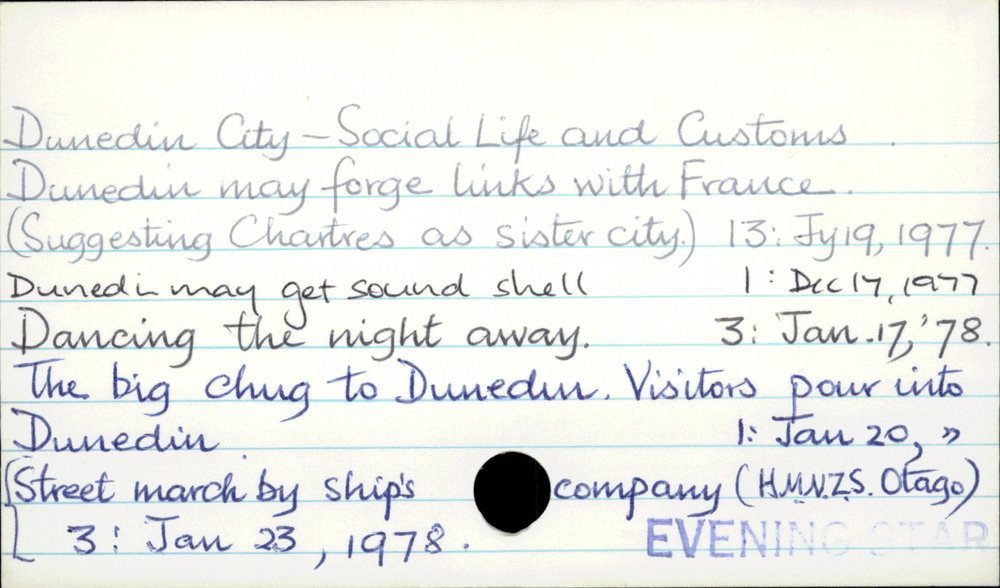 Dunedin City - Social Life and Customs.
Dunedin may forge links with France.
(Suggesting Chartres as sister city.) 13: Jy 19, 1977.
Dunedin may get sound shell 1: Dec 17, 1977
Dancing the night away. 3: Jan. 17, '78.
The big chug to Dunedin. Visitors pour into
Dunedin. 1: Jan 20, "
[Street march by ship's company (H.M.N.Z.S. Otago)
3: Jan 23, 1978.
EVENING STAR